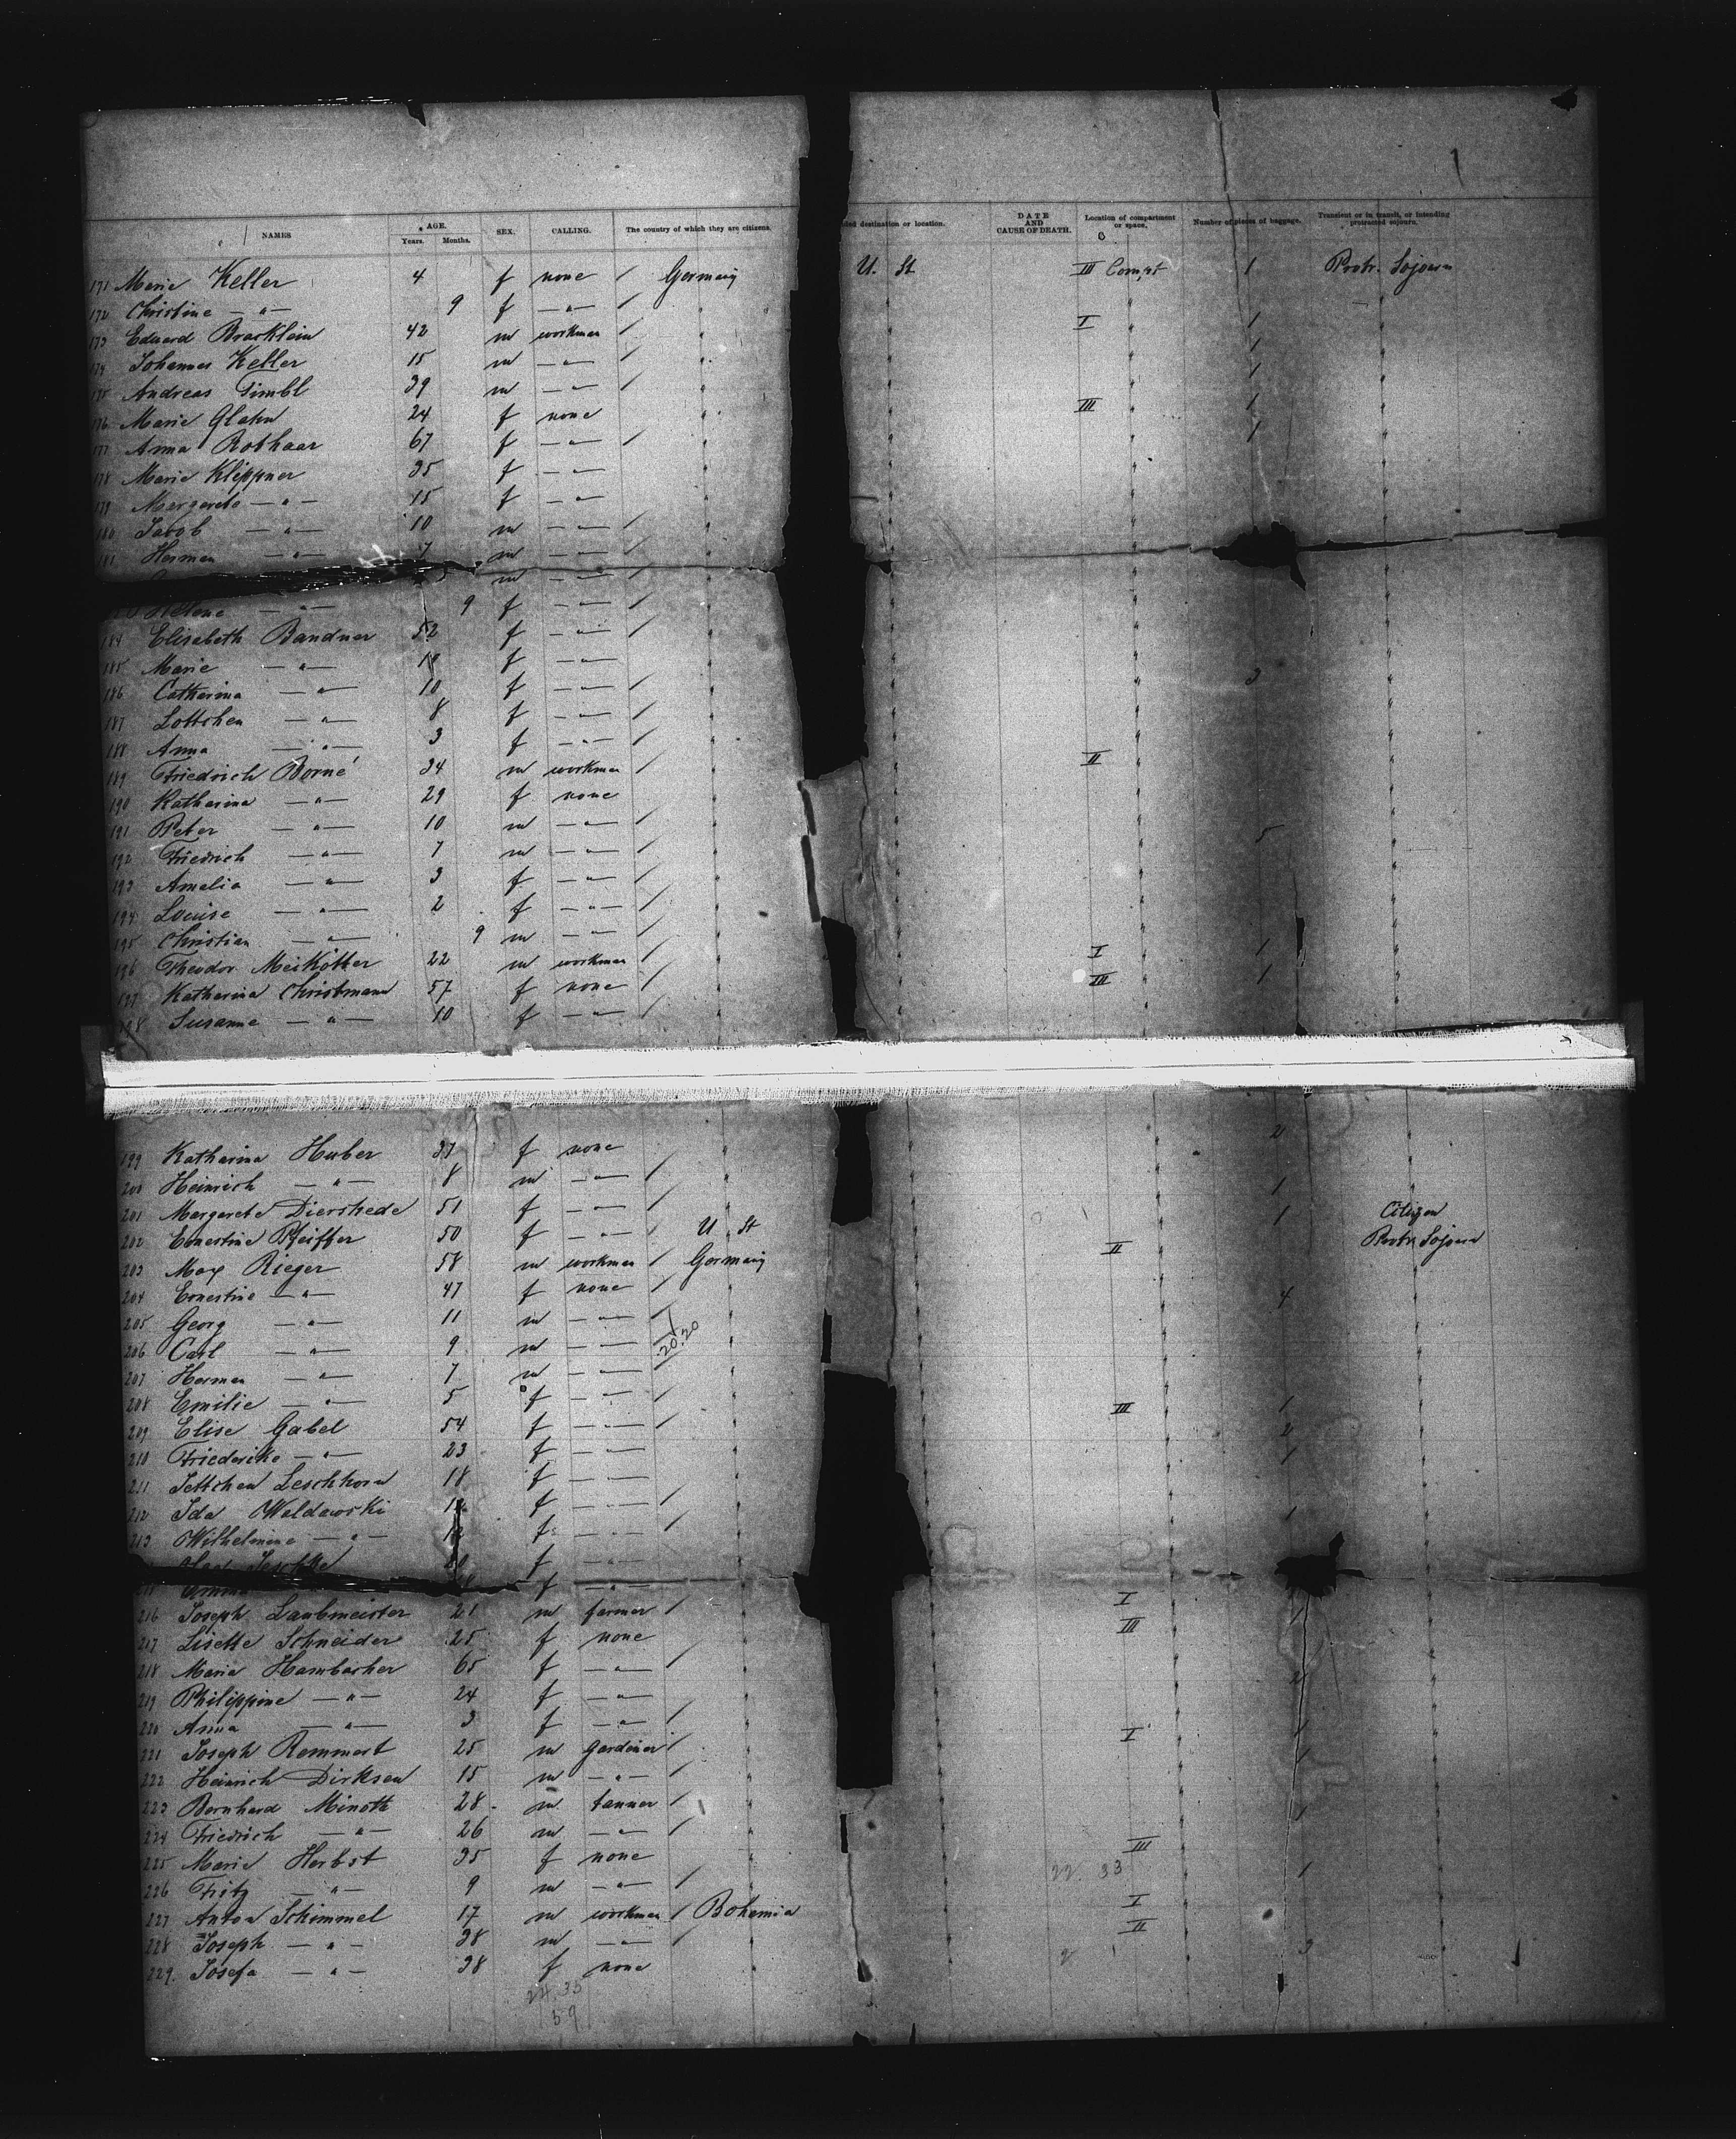 NAMES AGE. Years. Months. SEX. CALLING. The country of which they are citizens. ded destination or location. DATE AND CAUSE OF DEATH. Location of compartment or space. Number of pieces of baggage. Transient or in transit, or intending protracted sojourn.
171 Marie Keller 4 f none / Germany U. St III Compt 1 Protr. Sojourn
172 Christine — " — 9 f — " — /
173 Eduard Bracklein 42 m workman / I 1
174 Johannes Keller 15 m — " — / 1
175 Andreas Timbl 39 m — " — / 1
176 Marie Glahn 24 f none III 1
177 Anna Rothaar 67 f — " — / 1
178 Marie Klippner 35 f — " —
179 Margarete — " — 15 f — " —
180 Jacob — " — 10 m — " — /
181 Herman — " — 7 m — " — /
m — " — /
Helene — " — 9 f — " — /
184 Elisabeth Bandner 52 f — " — /
185 Marie — " — 18 f — " —
186 Catharina — " — 10 f — " — / 3
187 Lottchen — " — 8 f — " — /
188 Anna — " — 3 f — " — /
189 Friedrich Borné 34 m workman / II
190 Katharina — " — 29 f none
191 Peter — " — 10 m — " — /
192 Friedrich — " — 7 m — " — / 5
193 Amalia — " — 3 f — " — /
194 Louise — " — 2 f — " — /
195 Christian — " — 9 m — " — /
196 Theodor Meikötter 22 m workman / I 1
197 Katharina Christmann 57 f none / III 1
198 Susanne — " — 10 f — " — /
199 Katharina Huber 37 f none 2
200 Heinrich — " — 8 m — " — /
201 Margarete Diershede 51 f — " — / 1
202 Ernestine Pfeiffer 50 f — " — / U. St 1 Citizen
203 Max Rieger 58 m workman / Germany II Protr. Sojourn
204 Ernestine — " — 47 f none /
205 Georg — " — 11 m — " — / 4
206 Carl — " — 9 m — " — 20.20
207 Herman — " — 7 m — " — /
208 Emilie — " — 5 f — " — /
209 Elise Gabel 54 f — " — / III 1
210 Friedericke — " — 23 f — " — 2
211 Jettchen Leschhorn 18 f — " — 1
212 Ida Waldowski f — " — /
213 Wilhelmine — " — f — " — / 1
Jeschke f — " —
Emma f — " —
216 Joseph Laubmeister 21 m farmer / I
217 Lisette Schneider 25 f none III 1
218 Maria Hambacher 65 f — " — /
219 Philippine — " — 24 f — " — 2
220 Anna — " — 3 f — " — /
221 Joseph Remmert 25 m gardener / I 1
222 Heinrich Dirksen 15 m — " — / 1
223 Bernhard Minoth 28 m tanner /
224 Friedrich — " — 26 m — " — / 1
225 Marie Herbst 35 f none III
226 Fritz — " — 9 m — " — / 22. 33 1
227 Anton Schimmel 17 m workman / Bohemia I
228 Joseph — " — 38 m — " — / II
229. Josefa — " — 38 f none 2 3
24.35
59